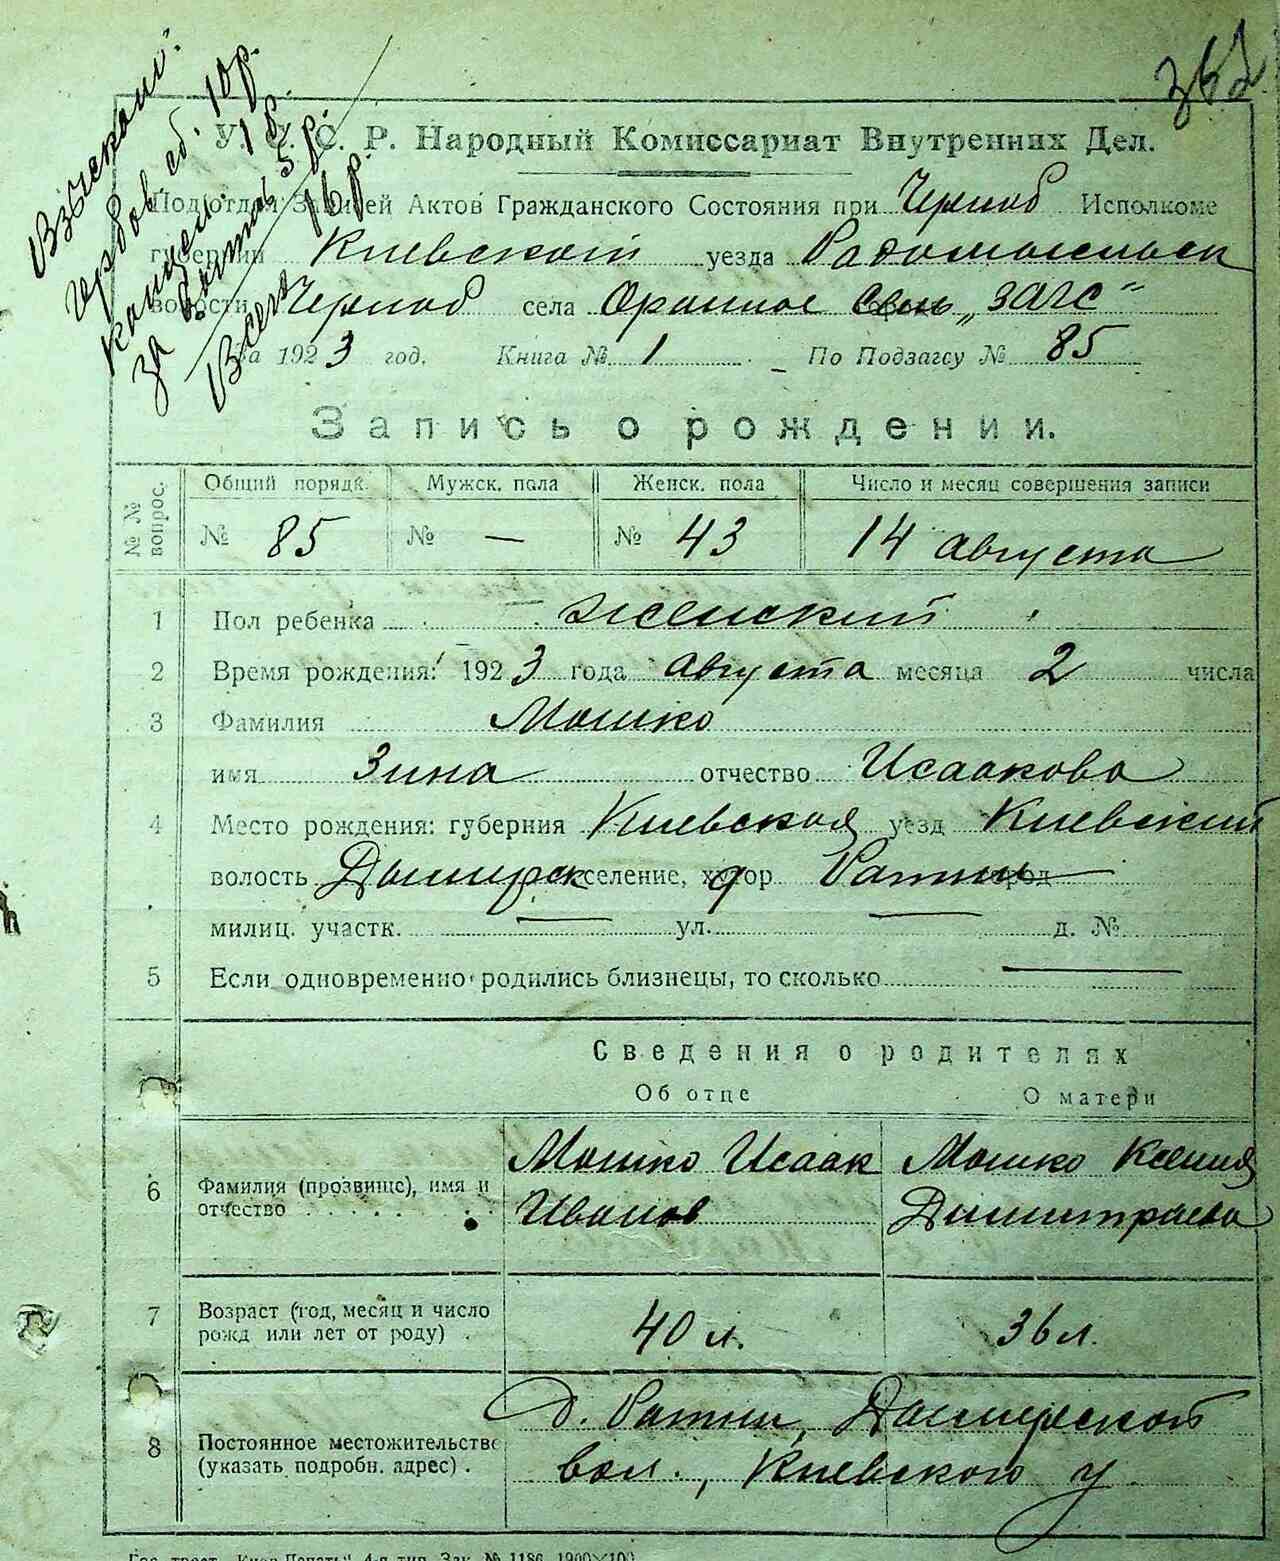 362
Взыскано:
гербов сб. 10 р.
канцел. 1 р.
за бланк 5 р.
Всего 16 р.
У. С. С. Р. Народный Комиссариат Внутренних Дел.
Подотдел Записей Актов Гражданского Состояния при Черноб Исполкоме
губернии Киевской уезда Радомысльск
волости Черноб села Оранное „ЗАГС"
За 1923 год. Книга № 1 По Подзагсу № 85
Запись о рождении.
№ № вопрос. Общий порядк. Мужск. пола Женск. пола Число и месяц совершения записи
№ 85 № — № 43 14 августа
1 Пол ребенка женский
2 Время рождения: 1923 года августа месяца 2 числа
3 Фамилия Мошко
имя Зина отчество Исаакова
4 Место рождения: губерния Киевская уезд Киевский
волость Дымерск селение, хутор Ратни город
милиц. участк. — ул. — д. №
5 Если одновременно родились близнецы, то сколько —
Сведения о родителях
Об отце О матери
6 Фамилия (прозвище), имя и отчество Мошко Исаак Иванов Мошко Ксения Димитриева
7 Возраст (год, месяц и число рожд или лет от роду) 40 л. 36 л.
8 Постоянное местожительство (указать подробн. адрес) д. Ратни, Дымерской вол., Киевского у
Гос. трест „Киев-Печать" 4-я тип. Зак. № 1186 1900×100